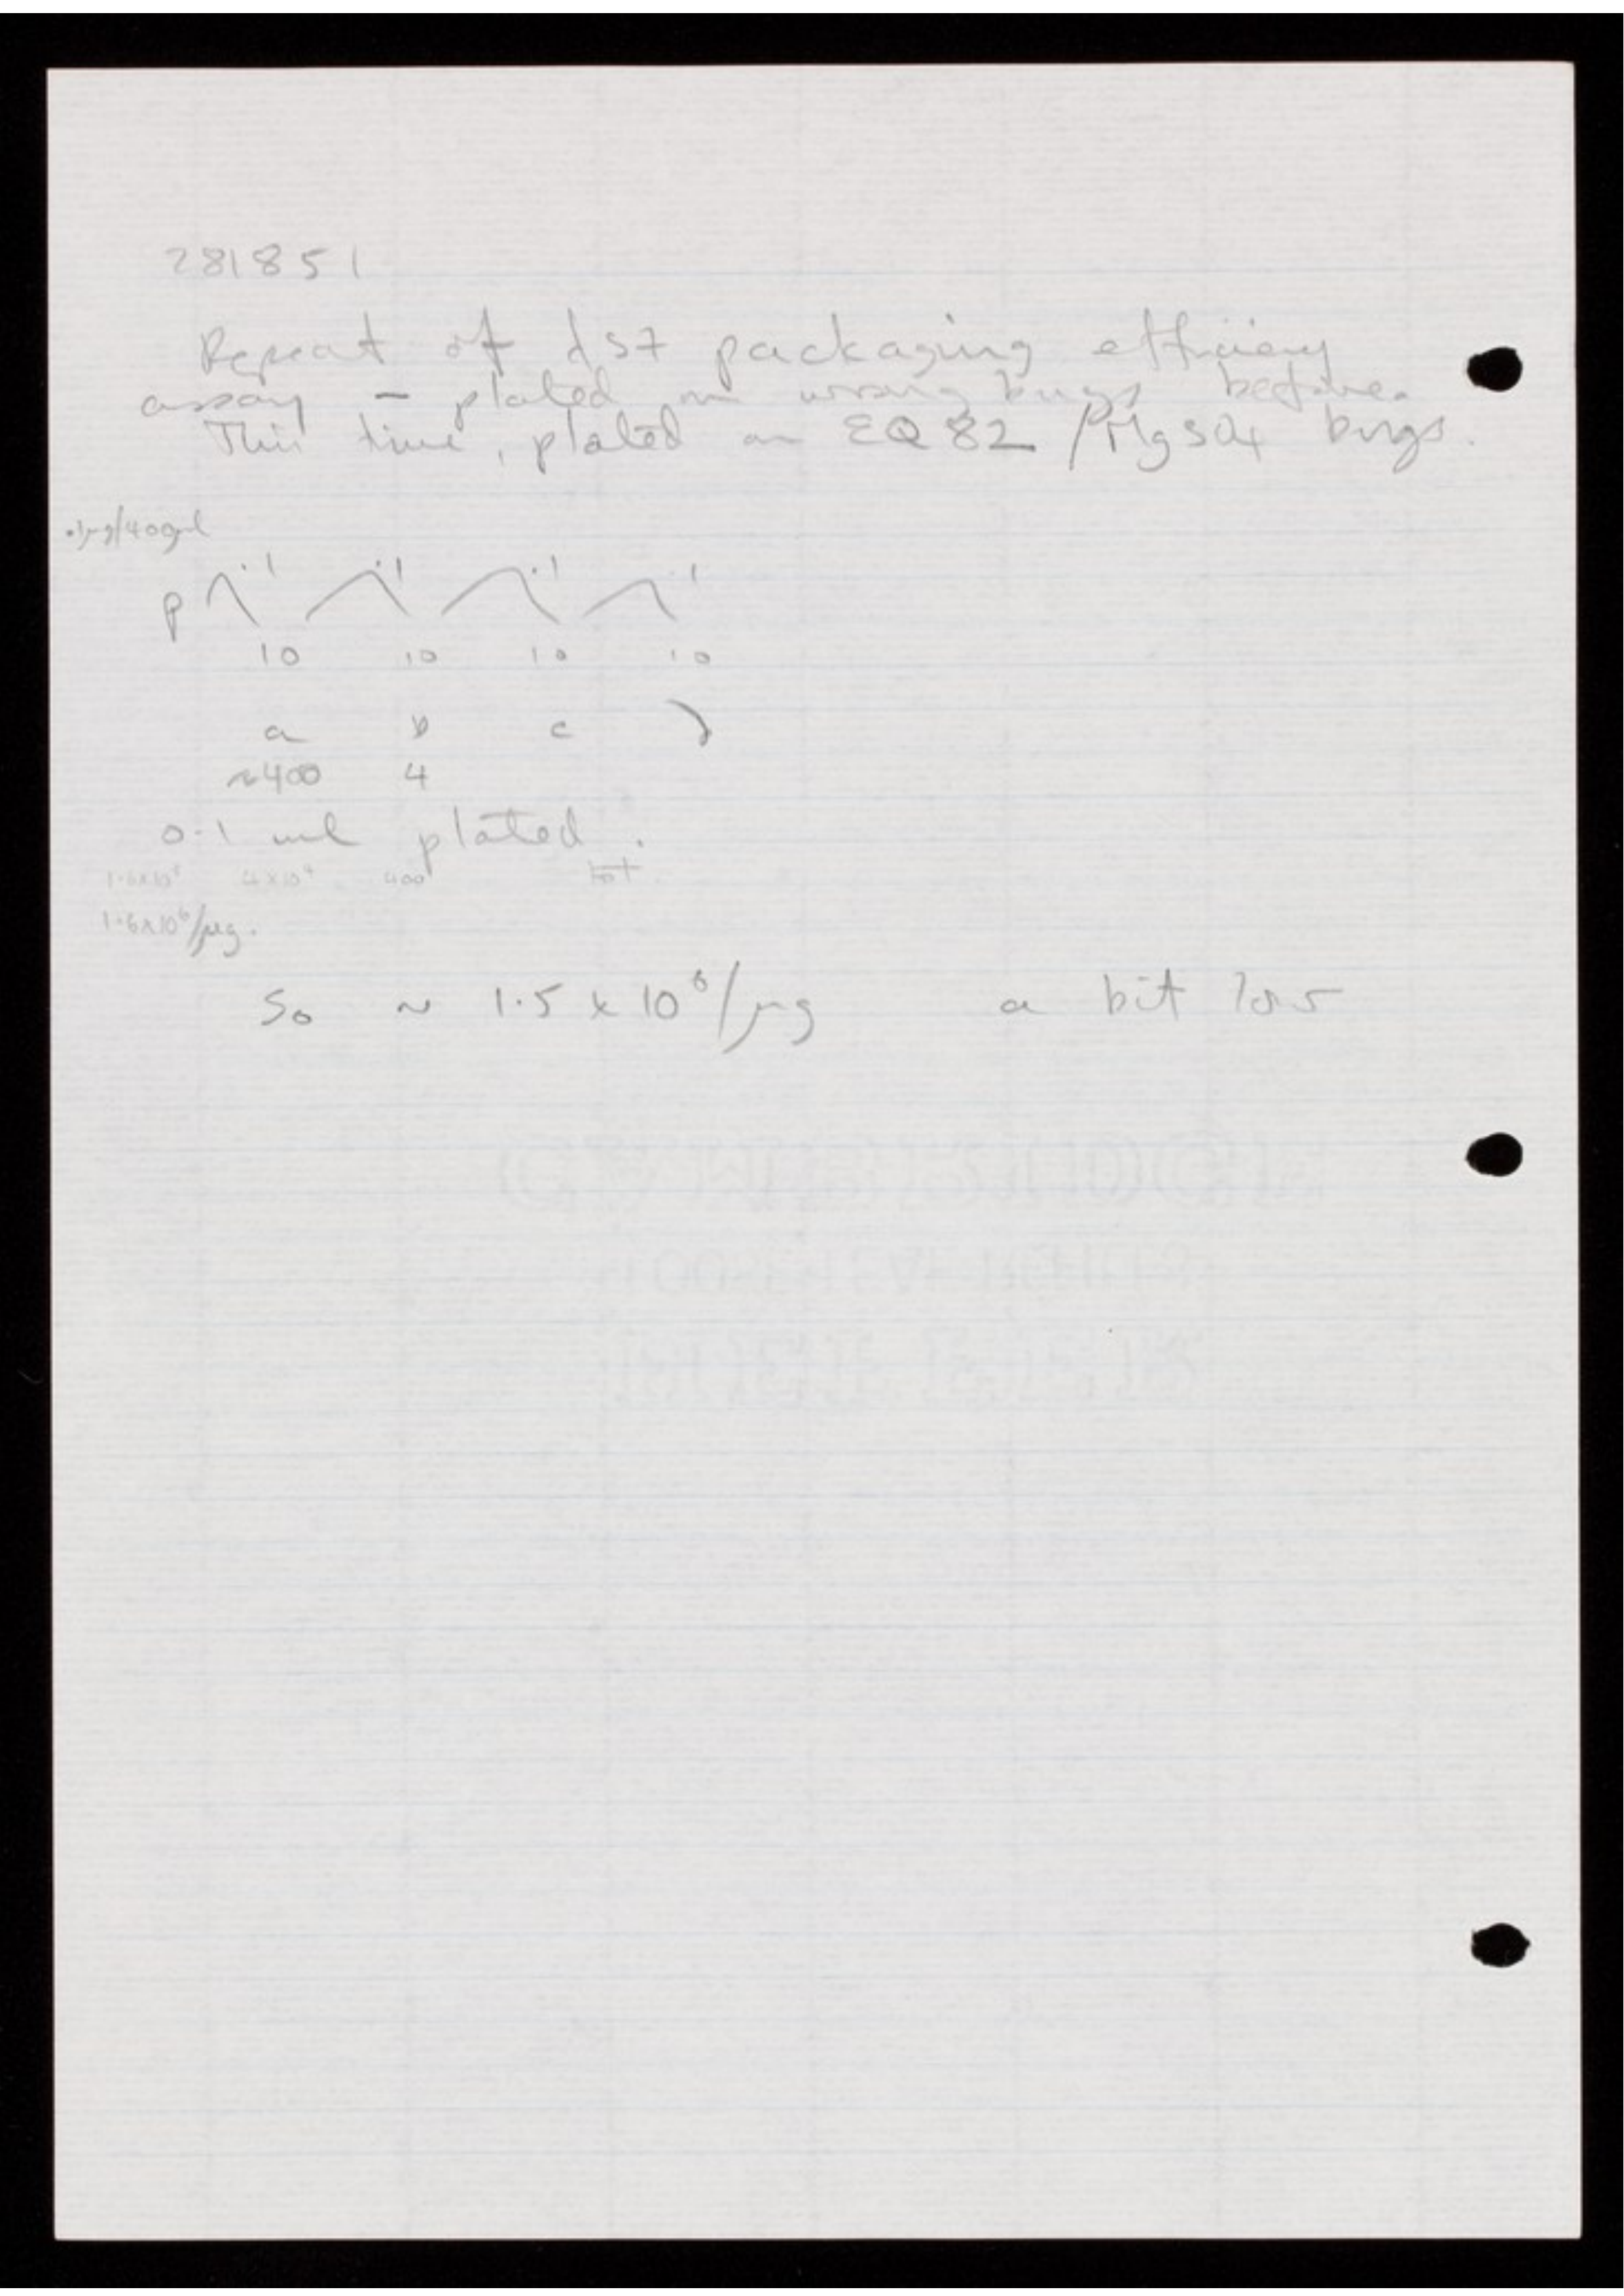 281851
Repeat of λ57 packaging efficiency
assay - plated on wrong bugs before.
This time, plated on EQ82 /MgSO4 bugs.
.1μg/400μl
p .1 .1 .1 .1
10 10 10 10
a b c
~400 4
0.1 ml plated.
4x10⁴ 400 tot.
1.6x10⁶/μg.
So ~ 1.5 x 10⁶/μg a bit low